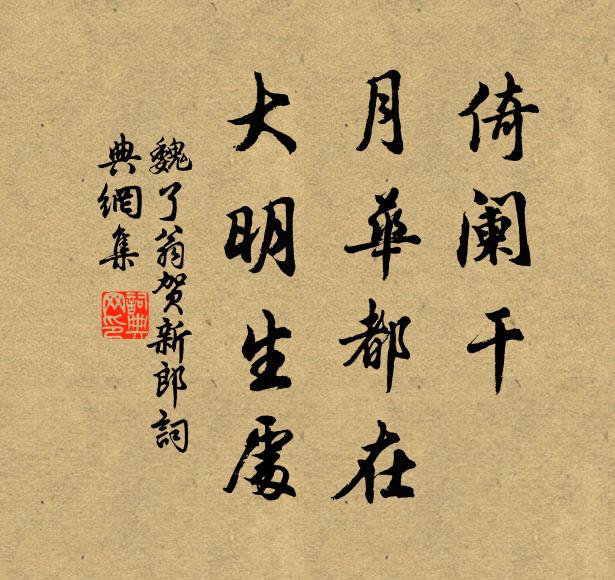 倚阑干
月華都在
大明生處
魏了翁贺新郎詞
典網集
詞典
网印